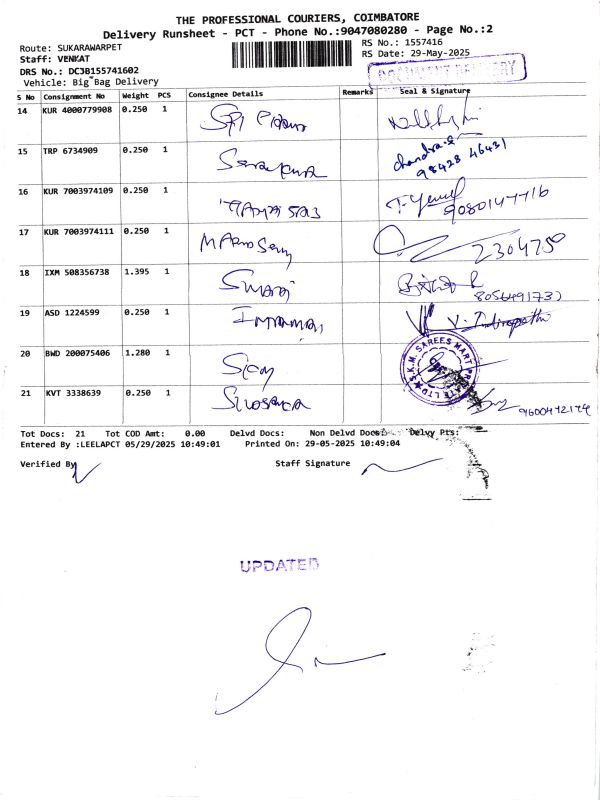 THE PROFESSIONAL COURIERS, COIMBATORE
Delivery Runsheet - PCT - Phone No.:9047080280 - Page No.:2
Route: SUKARAWARPET
RS No.: 1557416
Staff: VENKAT
RS Date: 29-May-2025
DRS No.: DC3B155741602
DOCUMENT DELIVERY
Vehicle: Big Bag Delivery
S No Consignment No Weight PCS Consignee Details Remarks Seal & Signature
14 KUR 4000779908 0.250 1
15 TRP 6734909 0.250 1 chandra.s
98428 46431
16 KUR 7003974109 0.250 1 9080147716
17 KUR 7003974111 0.250 1 2304750
18 IXM 508356738 1.395 1 Swathi
8056491737
19 ASD 1224599 0.250 1
20 BWD 200075406 1.280 1 S.K.M. SAREES MART PRIVATE LTD
21 KVT 3338639 0.250 1 9600472174
Tot Docs: 21 Tot COD Amt: 0.00 Delvd Docs: Non Delvd Docs: Delvy Pts:
Entered By :LEELAPCT 05/29/2025 10:49:01 Printed On: 29-05-2025 10:49:04
Verified By Staff Signature
UPDATED